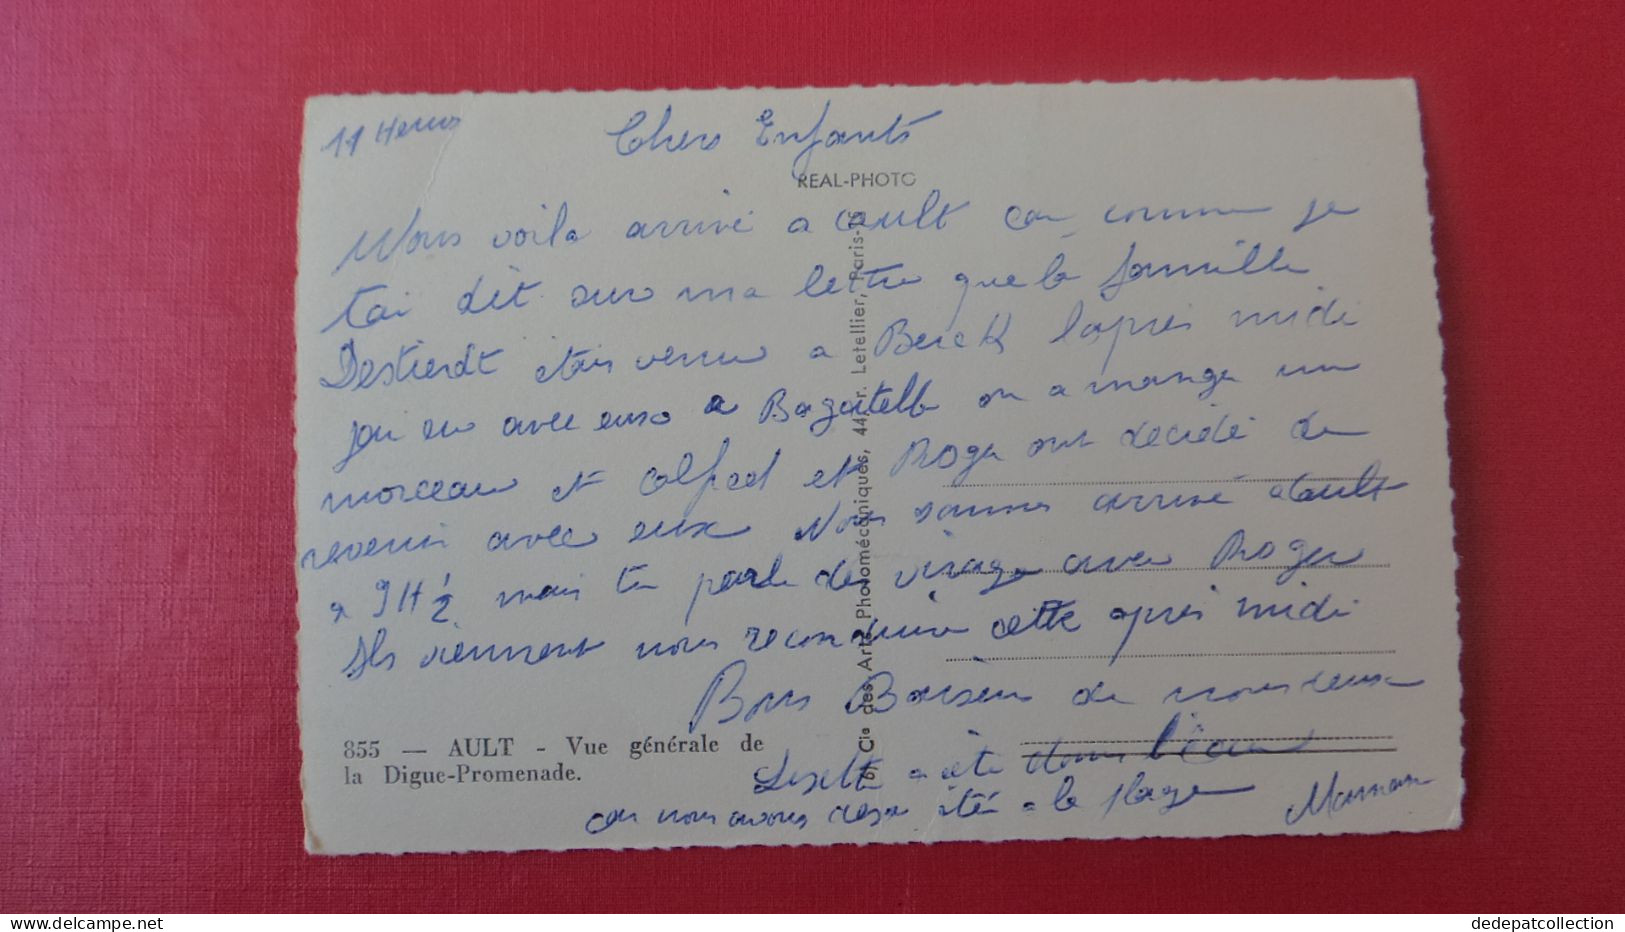 11 Heures
Chers Enfants
REAL-PHOTO
Nous voila arrivé a ault car comme je
tai dit sur ma lettre que la famille
Destierdt étais venu a Berck laprés midi
jai eu avec euso a Bagatelle on a mangé un
morceau et alfred et Roger ont décidé de
revenir avec eux Nous sommes arrivé a ault
a 9H½ mais tu parle de virage avec Roger
Ils viennent nous reconduire cette aprés midi
Bons Baisers de nous deux
Lisette a été dans l'eau
car nous avons deja été a la plage
Maman
855 — AULT - Vue générale de
la Digue-Promenade.
Cie des Arts Photomécaniques, 44, r. Letellier, Paris-15
dedepatcollection